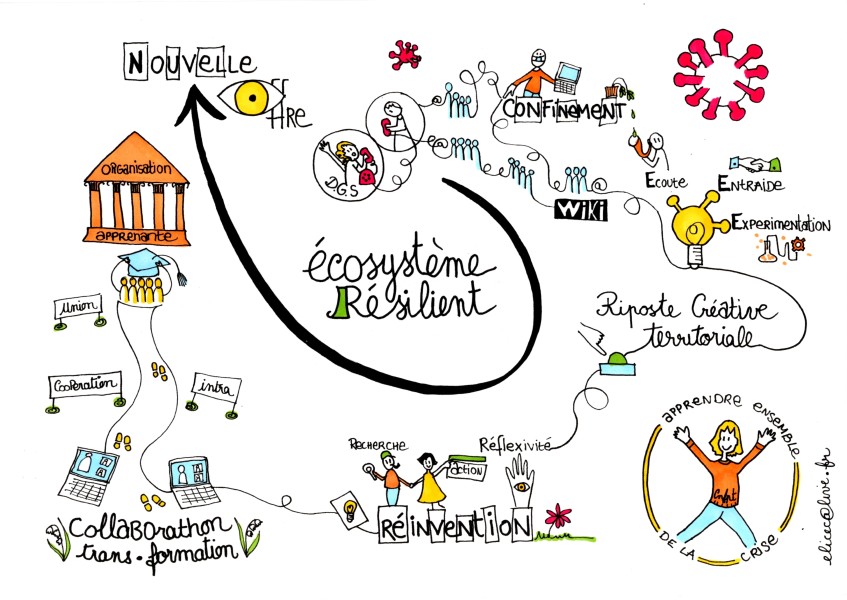 NOUVELLE
ÈRE
D.G.S
@
@
CONFINEMENT
@
WIKI
ECOUTE
ENTRAIDE
EXPERIMENTATION
ORGANISATION
APPRENANTE
écosystème
Résilient
Riposte Créative
territoriale
union
Coopération
intra
RECHERCHE
action
Réflexivité
RÉINVENTION
COLLABORathon
trans-formation
APPRENDRE ENSEMBLE
DE LA CRISE
Cnfpt
elicec@live.fr